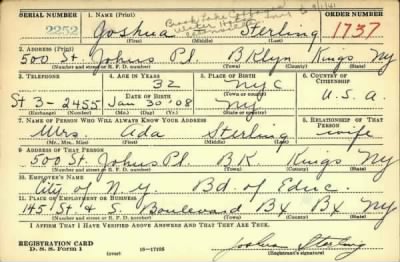 SERIAL NUMBER 1. NAME (Print) ORDER NUMBER
2252 Joshua Sterling 1737
(First) (Middle) (Last)
2. ADDRESS (Print)
500 St. Johns Pl. BKlyn Kings NY
(Number and street or R. F. D. number) (Town) (County) (State)
3. TELEPHONE 4. AGE IN YEARS 5. PLACE OF BIRTH 6. COUNTRY OF CITIZENSHIP
32 NYC
DATE OF BIRTH (Town or county)
St 3-2455 Jan 30 '08 NY U.S.A.
(Exchange) (Number) (Mo.) (Day) (Yr.) (State or country)
7. NAME OF PERSON WHO WILL ALWAYS KNOW YOUR ADDRESS 8. RELATIONSHIP OF THAT PERSON
Mrs. Ada Sterling wife
(Mr., Mrs., Miss) (First) (Middle) (Last)
9. ADDRESS OF THAT PERSON
500 St. Johns Pl. BK. Kings NY
(Number and street or R. F. D. number) (Town) (County) (State)
10. EMPLOYER'S NAME
City of N.Y. Bd. of Educ.
11. PLACE OF EMPLOYMENT OR BUSINESS
145 St & S. Boulevard BX BX NY
(Number and street or R. F. D. number) (Town) (County) (State)
I AFFIRM THAT I HAVE VERIFIED ABOVE ANSWERS AND THAT THEY ARE TRUE.
REGISTRATION CARD
D. S. S. Form 1 (over) 16—17105
Joshua Sterling
(Registrant's signature)